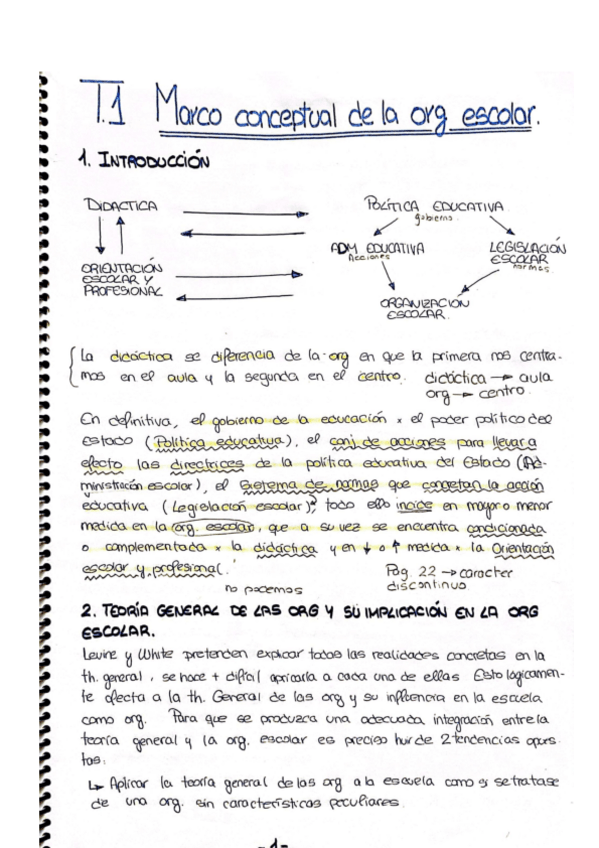 T.1 Marco conceptual de la org escolar.
1. INTRODUCCIÓN
DIDACTICA
POLÍTICA EDUCATIVA
gobierno.
ADM EDUCATIVA
Acciones
LEGISLACIÓN
ESCOLAR
normas.
ORIENTACIÓN
ESCOLAR Y
PROFESIONAL
ORGANIZACION
ESCOLAR.
La didáctica se diferencia de la org en que la primera nos centra-
mos en el aula y la segunda en el centro. didáctica → aula
org → centro.
En definitiva, el gobierno de la educación x el poder político del
Estado (Política educativa), el conj. de acciones para llevar a
efecto las directrices de la política educativa del Estado (Ad-
ministración escolar), el sistema de normas que concretan la acción
educativa (Legislación escolar), todo ello incide en mayor o menor
medida en la org. escolar, que a su vez se encuentra condicionada
o complementada x la didáctica y en ↓ o ↑ medida x la Orientación
escolar y profesional.
Pag. 22 → caracter
discontinuo
no podemos
2. TEORÍA GENERAL DE LAS ORG Y SU IMPLICACIÓN EN LA ORG
ESCOLAR.
Levine y White pretenden explicar todas las realidades concretas en la
th. general, se hace + difícil aplicarla a cada una de ellas Esto logicamen-
te afecta a la th. General de las org y su influencia en la escuela
como org. Para que se produzca una adecuada integración entre la
teoría general y la org. escolar es preciso huir de 2 tendencias opues-
tas:
↳ Aplicar la teoría general de las org a la escuela como si se tratase
de una org. sin características peculiares.
-1-